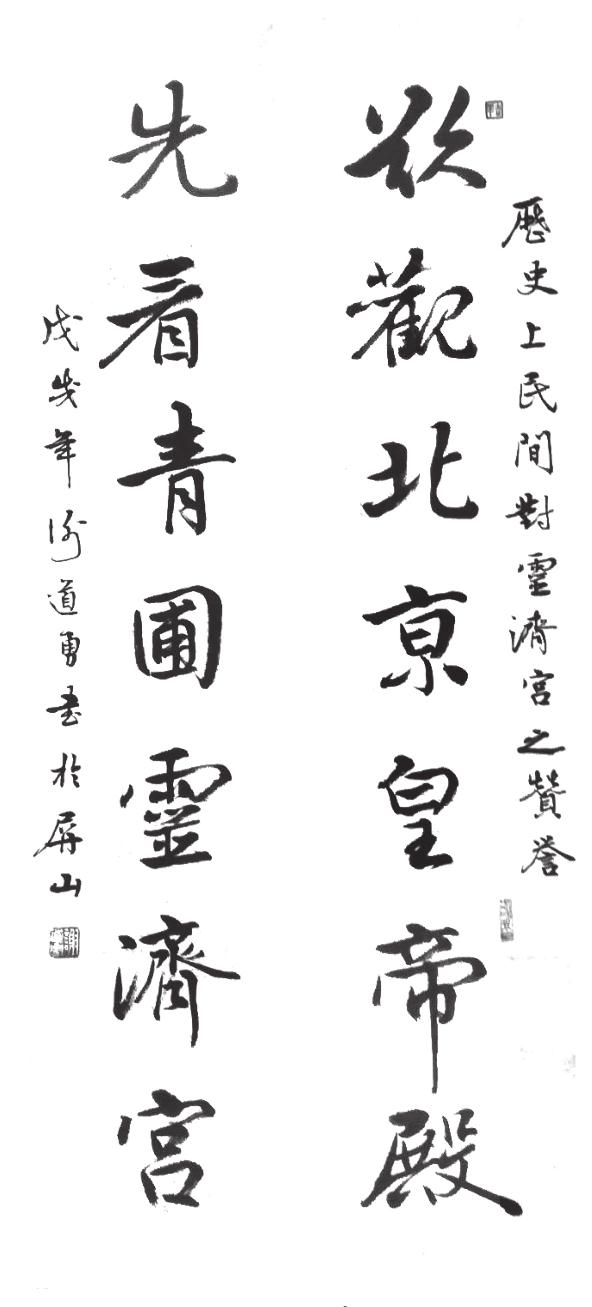 歷史上民間對靈濟宮之贊譽
欲觀北京皇帝殿
先看青圃靈濟宮
戊戌年謝道勇書於屏山